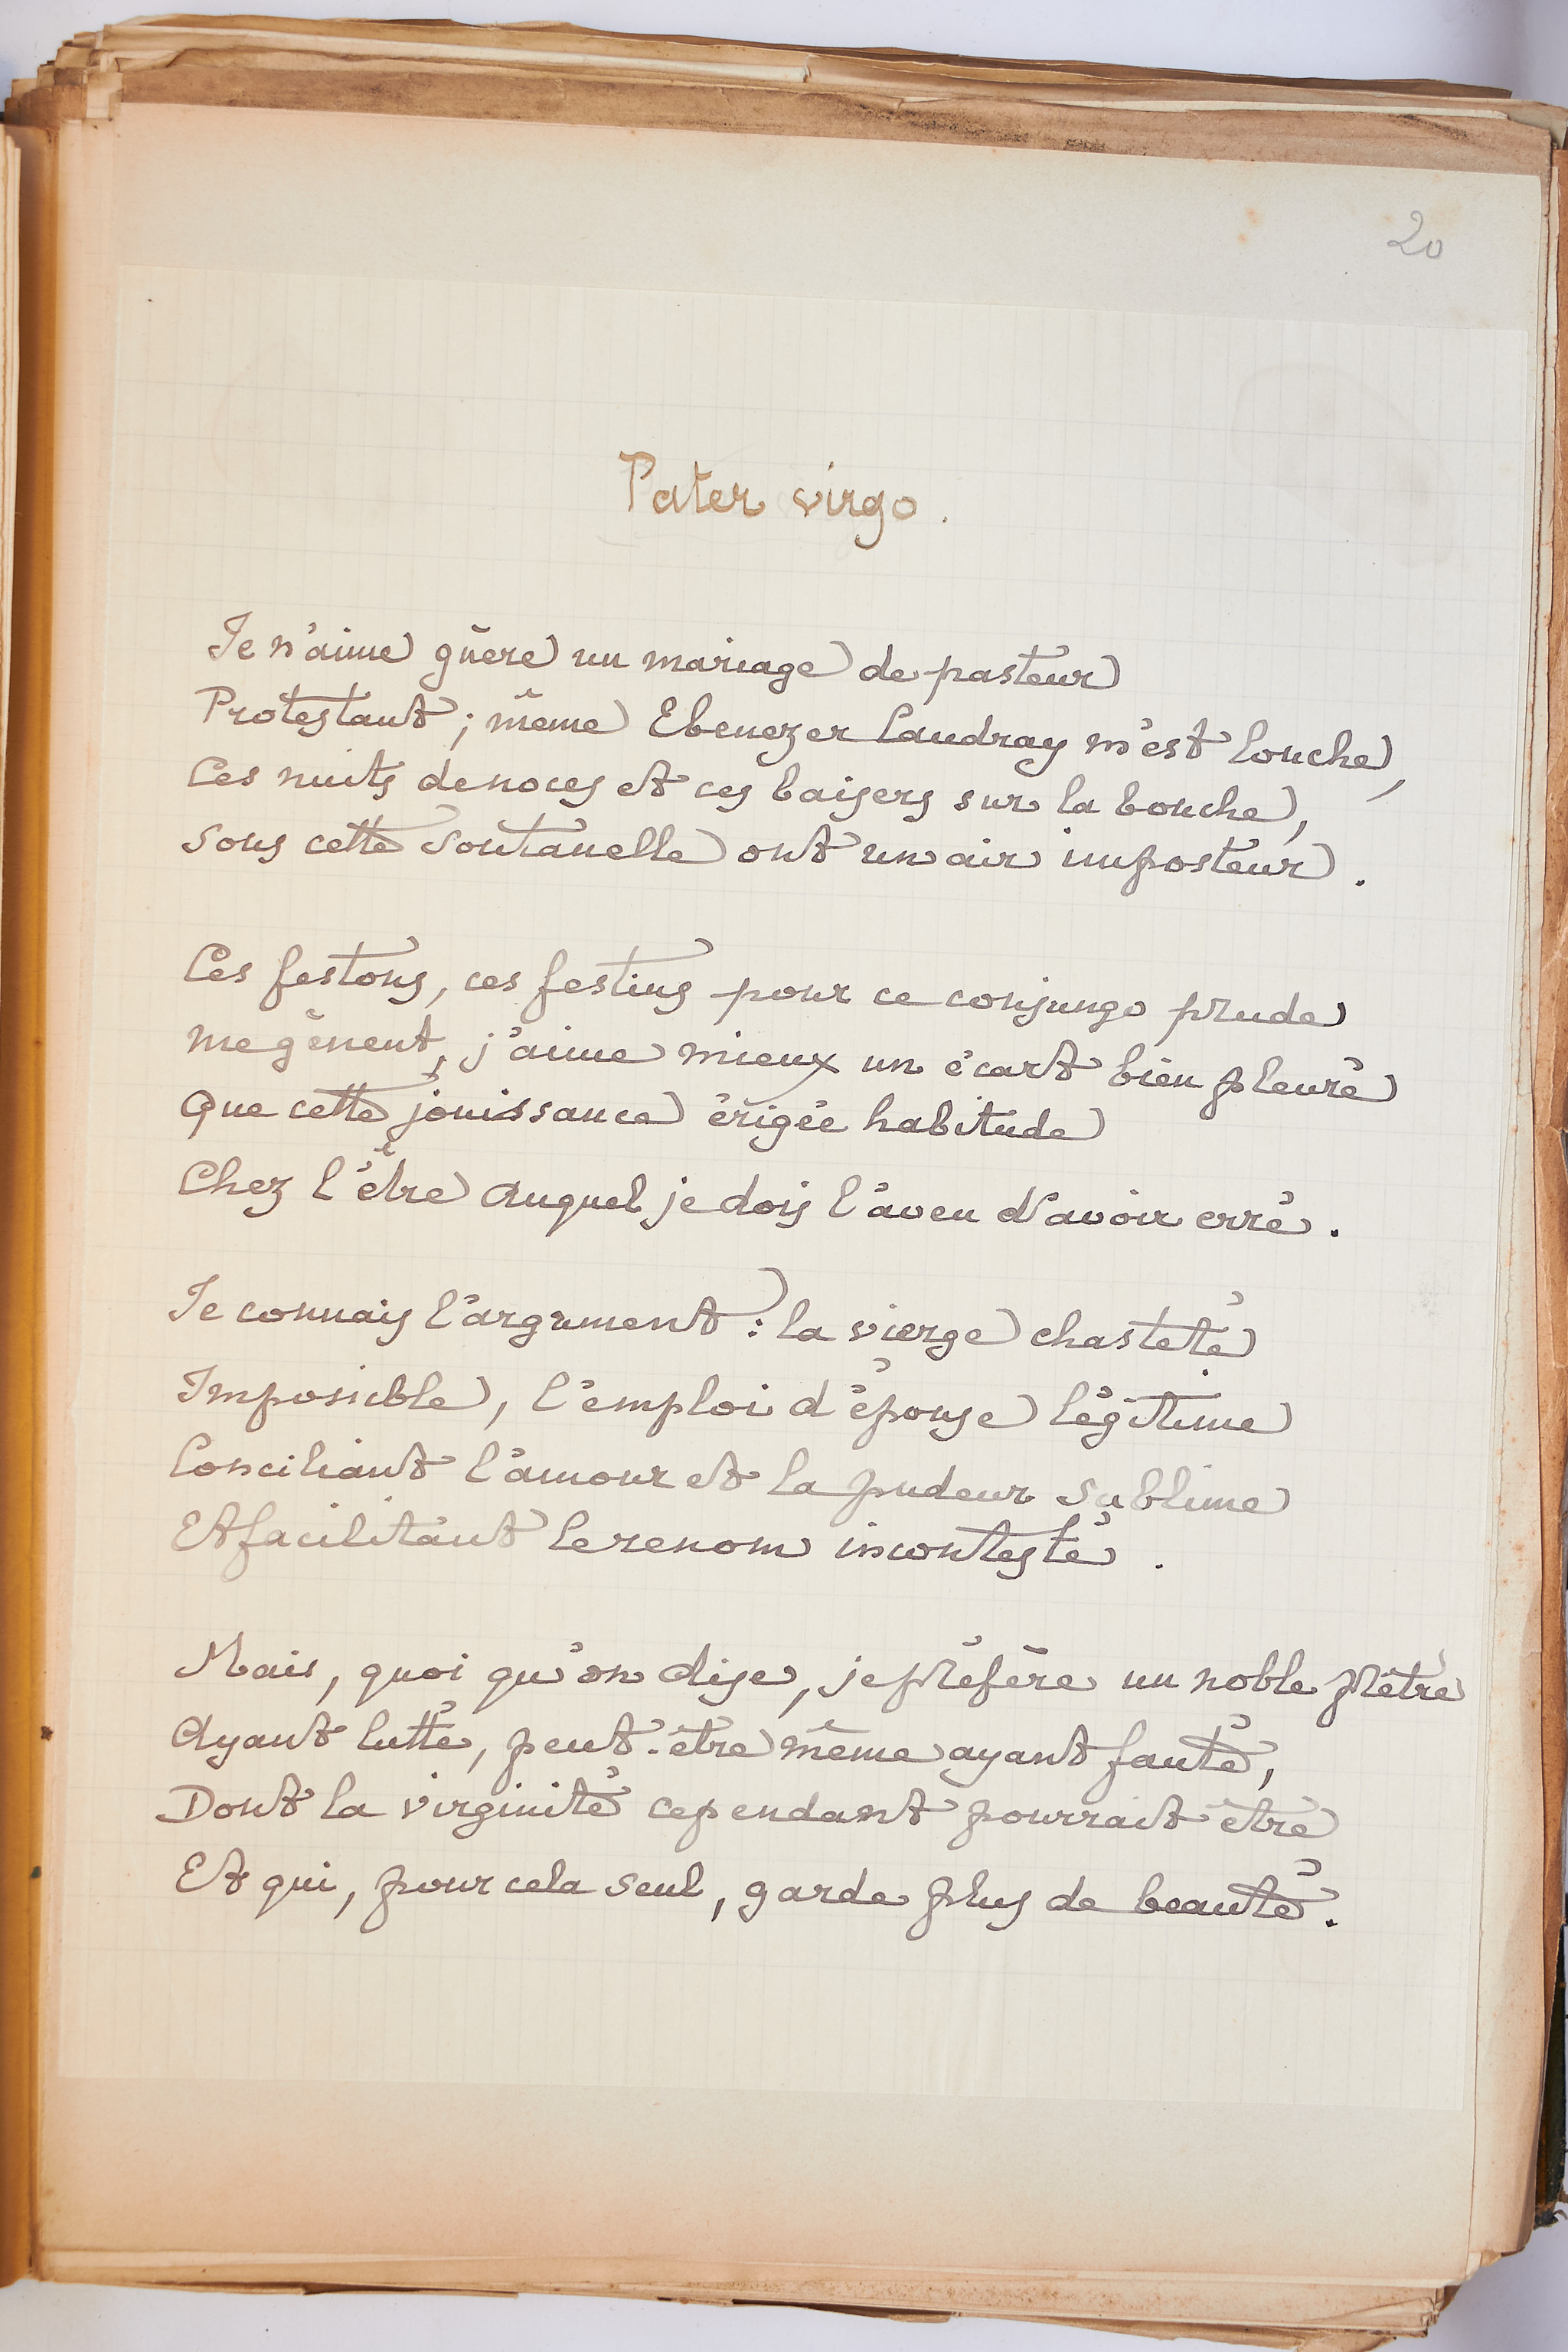 20
Pater virgo.
Je n'aime guère un mariage de pasteur
Protestant ; même Ebenezer Landray m'est louche,
Ces nuits de noces et ces baisers sur la bouche,
Sous cette soutanelle ont un air imposteur.
Ces festons, ces festins pour ce conjungo prude
Me gênent, j'aime mieux un écart bien pleuré
Que cette jouissance érigée habitude
Chez l'être auquel je dois l'aveu d'avoir erré.
Je connais l'argument : la vierge chasteté
Impossible, l'emploi d'épouse légitime
Conciliant l'amour et la pudeur sublime
Et facilitant le renom incontesté.
Mais, quoi qu'on dise, je préfère un noble prêtre
Ayant lutté, peut-être même ayant fauté,
Dont la virginité cependant pourrait être
Et qui, pour cela seul, garde plus de beauté.